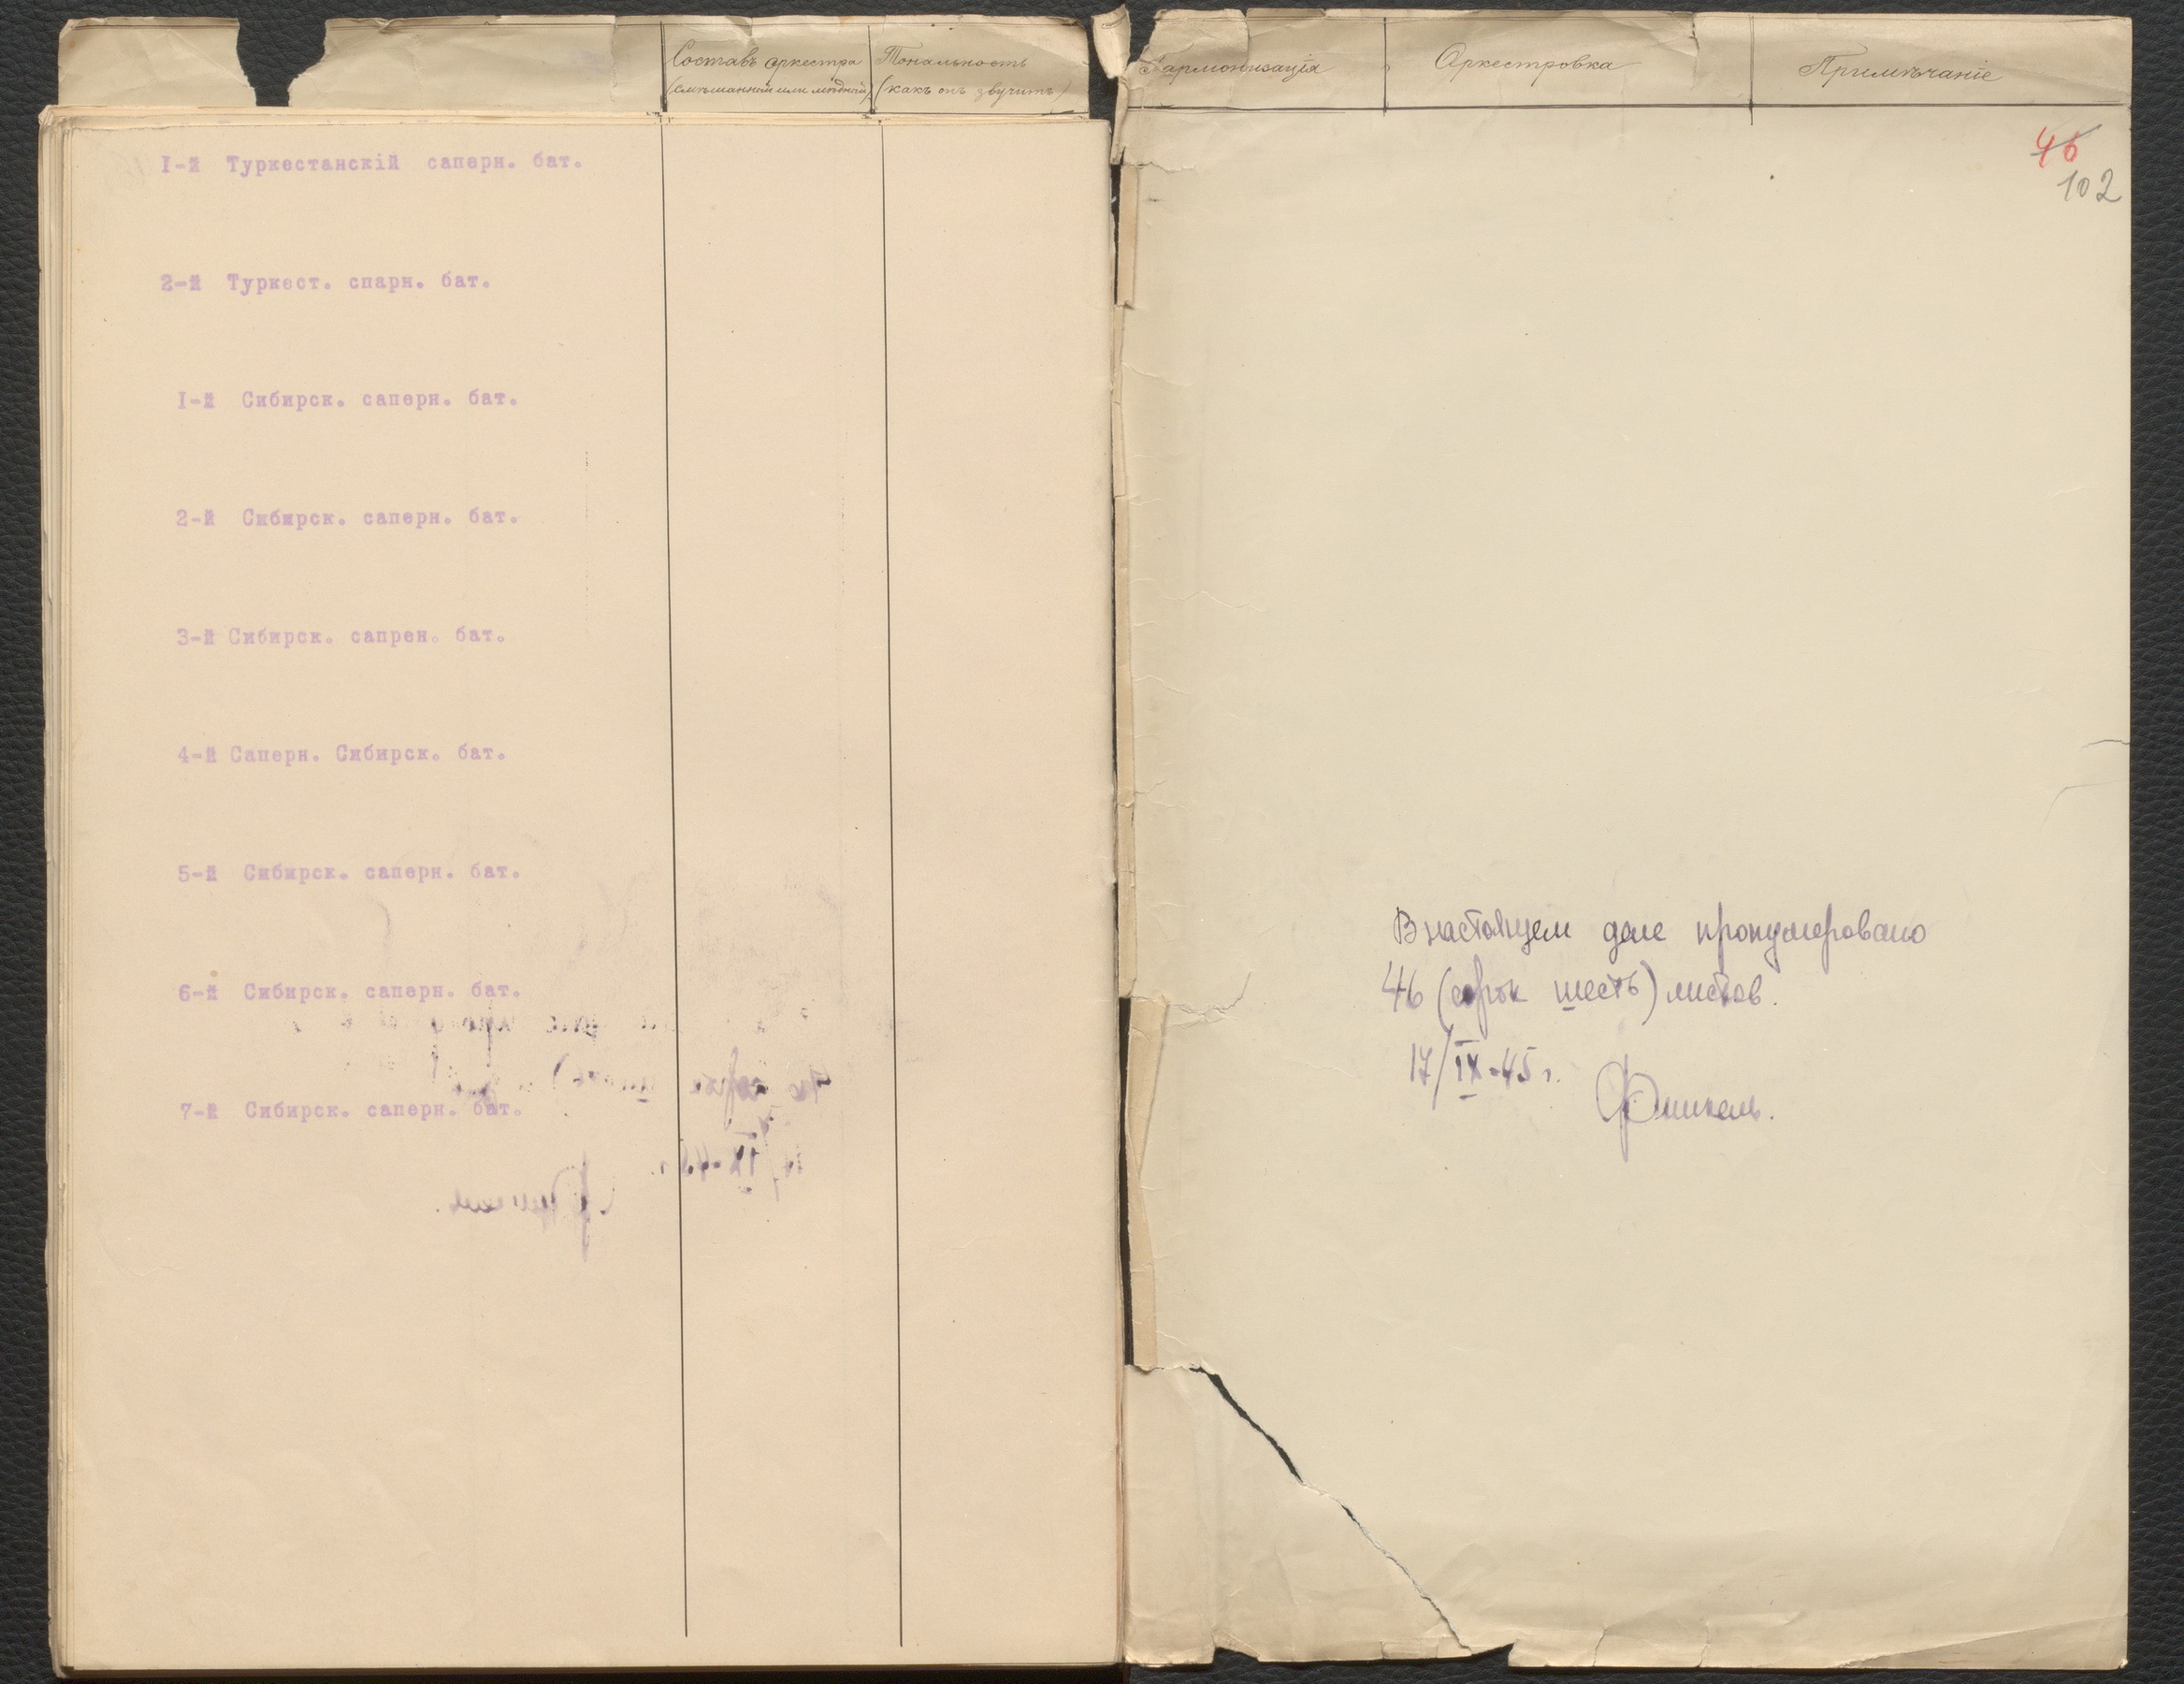 Составъ оркестра
(смѣшанный или мѣдный)
Тональность
(какъ онъ звучитъ)
Гармонизація
Оркестровка
Примѣчаніе
I-й Туркестанскій саперн. бат.
2-й Туркест. спарн. бат.
I-й Сибирск. саперн. бат.
2-й Сибирск. саперн. бат.
3-й Сибирск. сапрен. бат.
4-й Саперн. Сибирск. бат.
5-й Сибирск. саперн. бат.
6-й Сибирск. саперн. бат.
7-й Сибирск. саперн. бат.
46
102
В настоящем деле пронумеровано
46 (сорок шесть) листов.
17/IX-45 г.